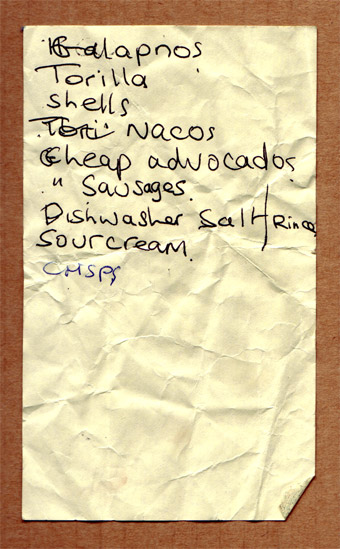 Halapnos
Torilla
shells
Tori Nacos
Cheap advocados
" Sausages.
Dishwasher Salt/Rince
Sourcream.
CHSPS